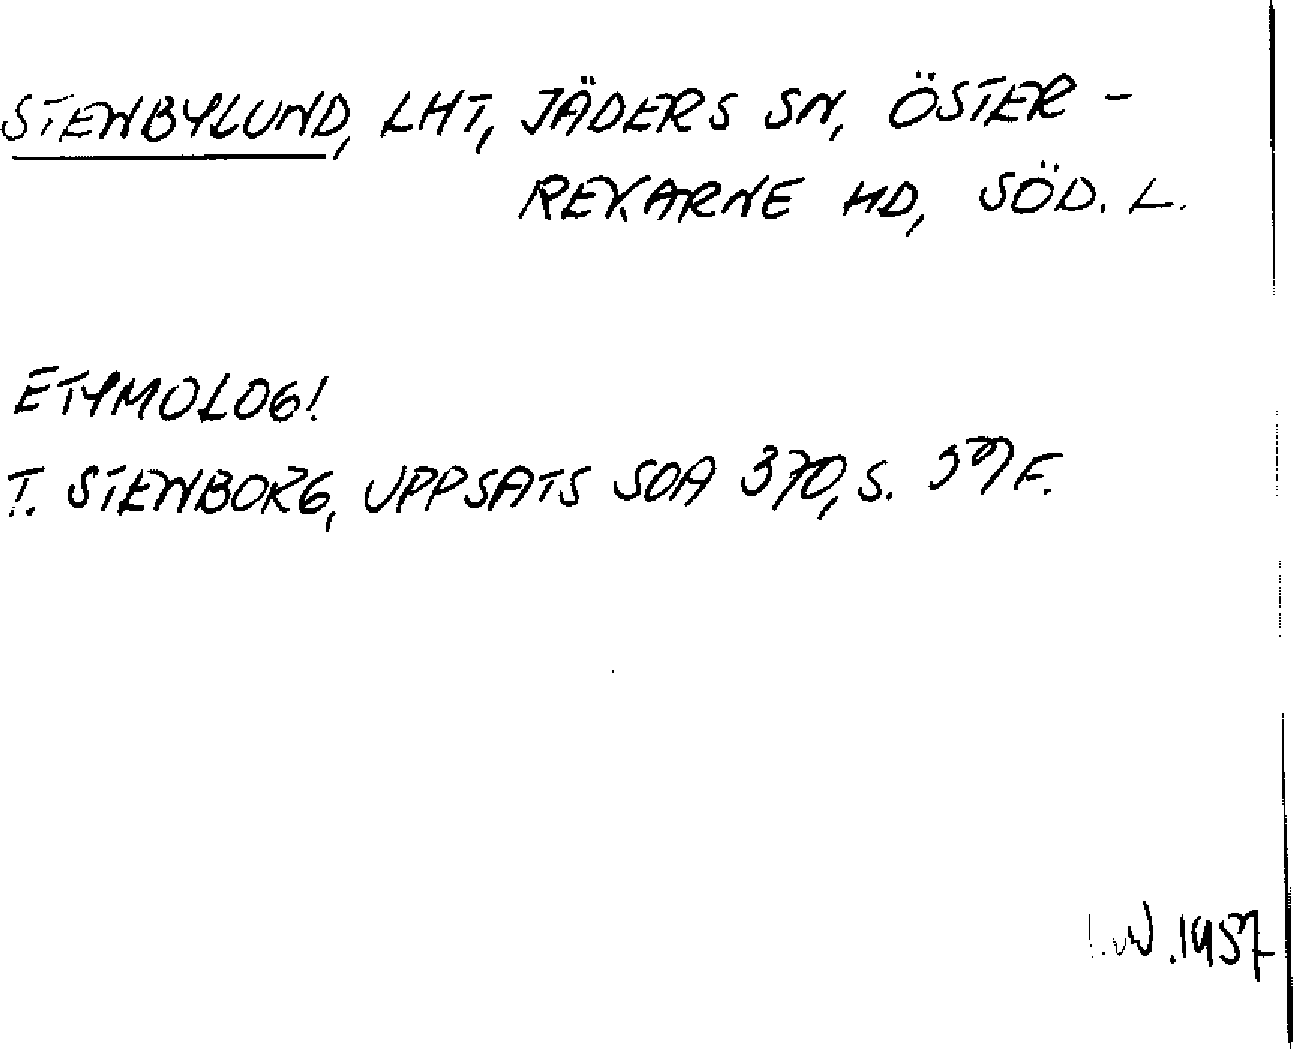 STENBYLUND, LHT, JÄDERS SN, ÖSTER-
REKARNE HD, SÖD. L.
ETYMOLOG!
T. STENBORG, UPPSATS SOA 370, S. 39 F.
.1957